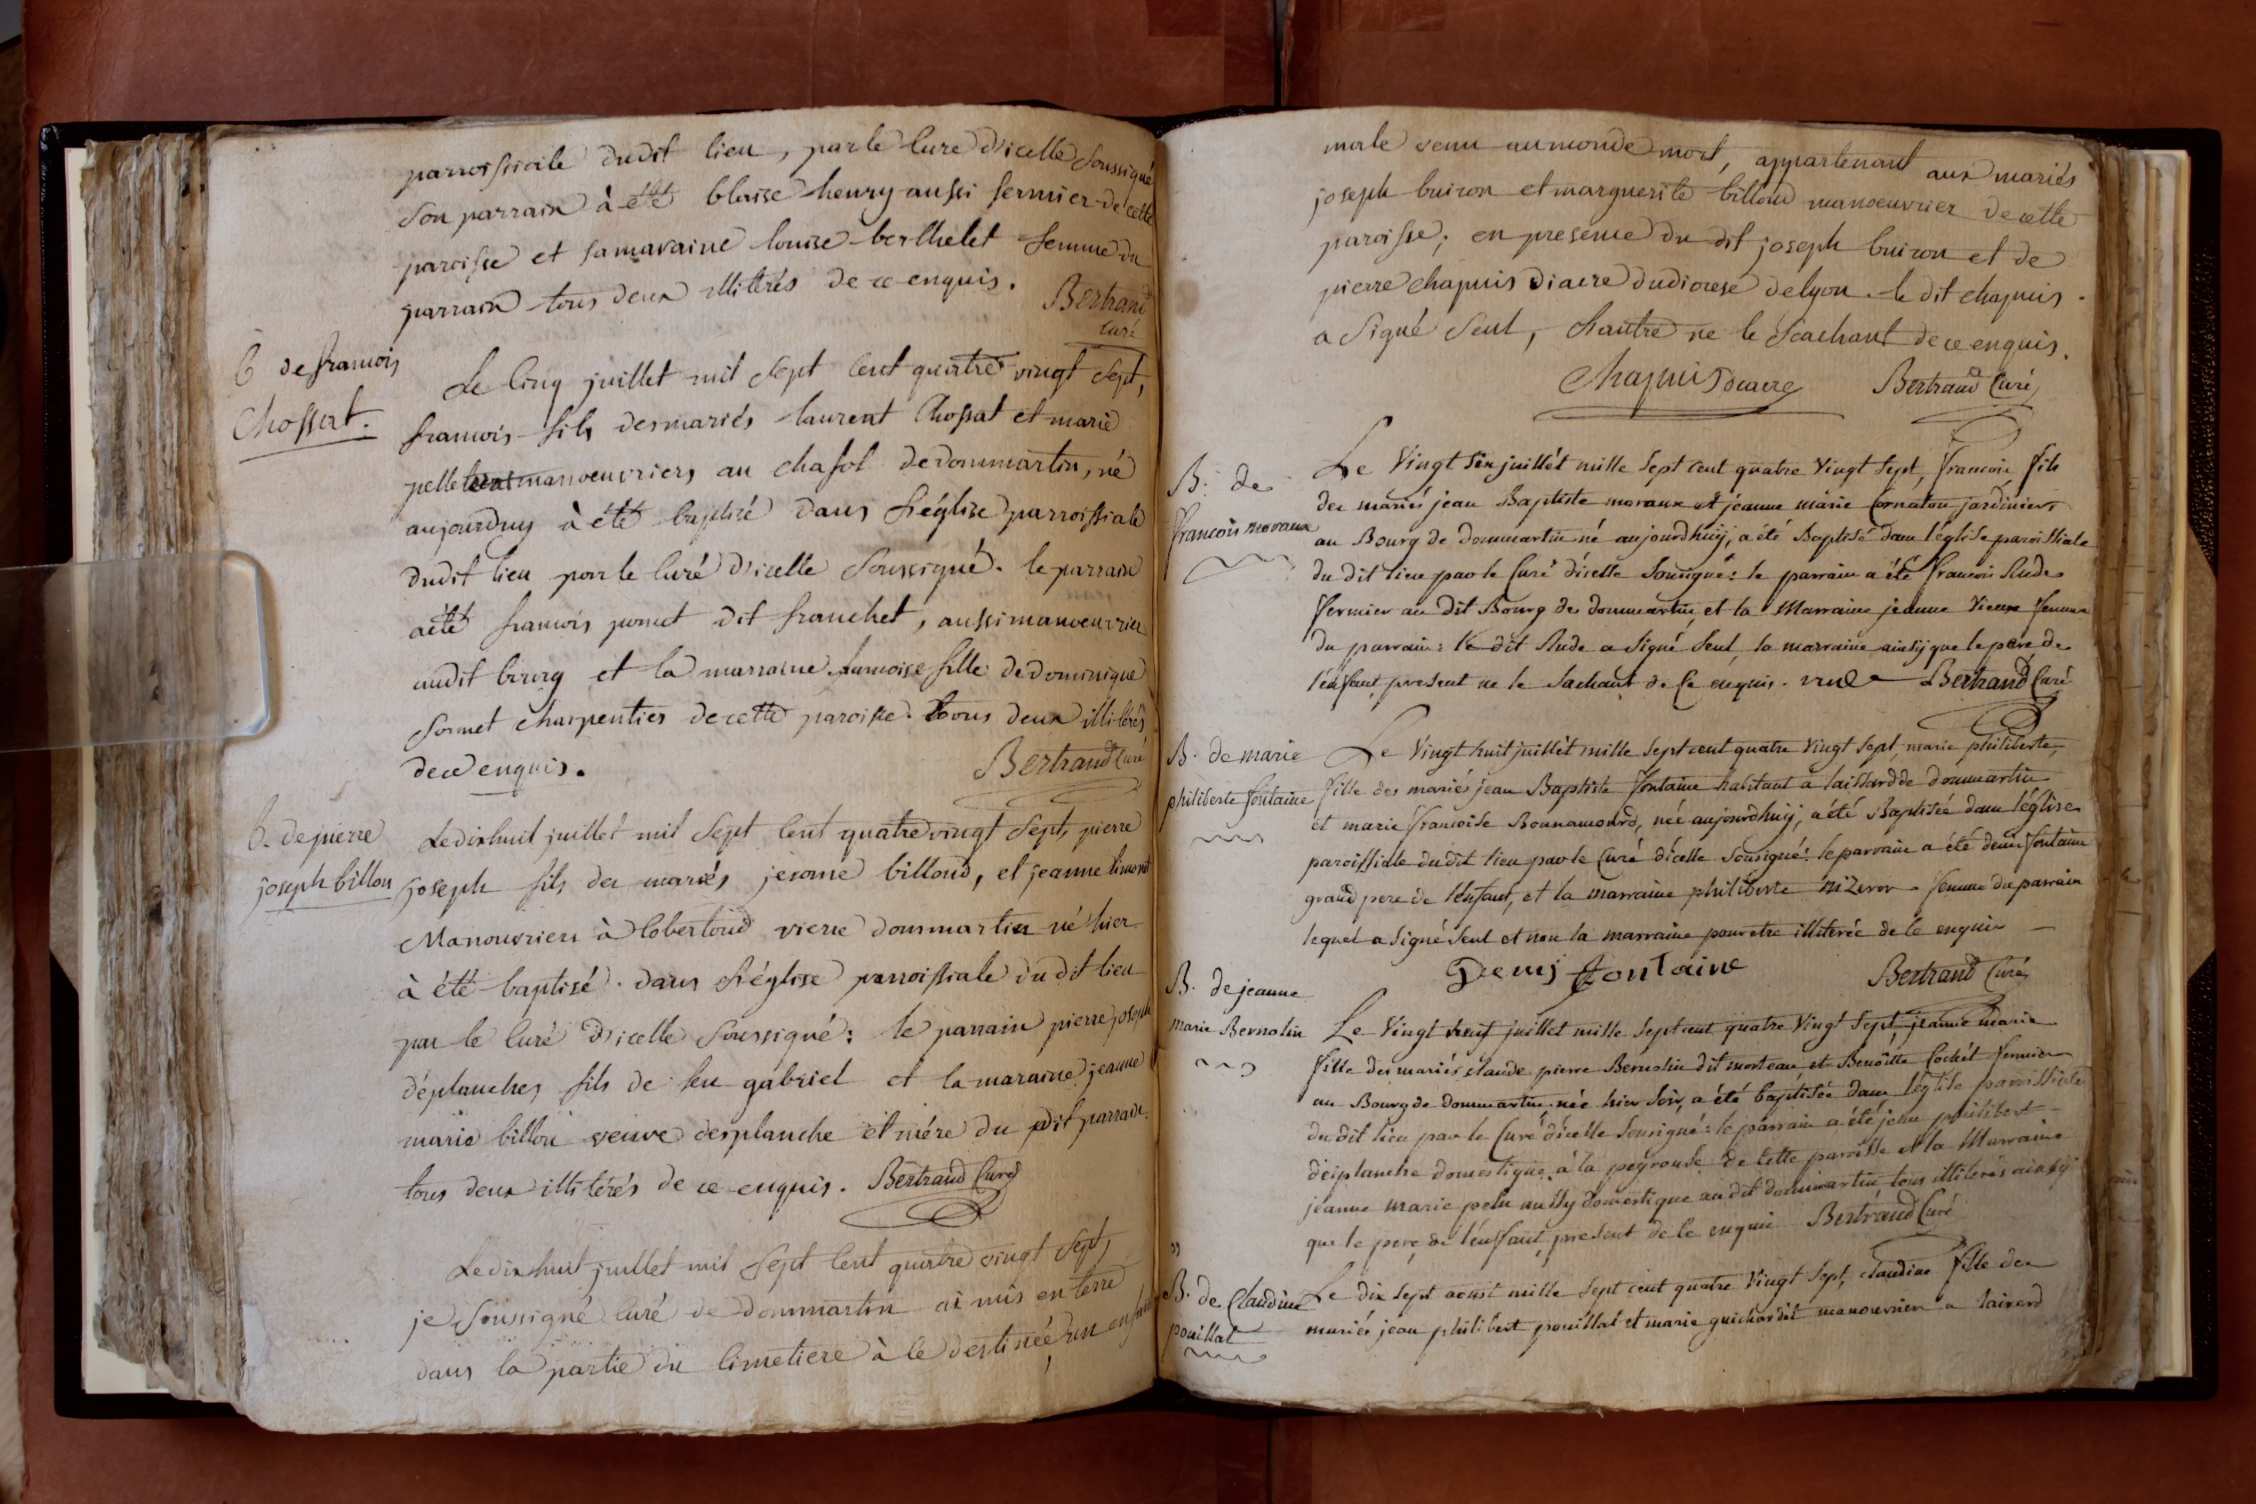 parroissiale dudit lieu, par le Curé d'icelle soussigné
son parrain à été blaise henry aussi fermier de cette
paroisse et sa maraine louise berthelet femme du
parrain tous deux illiterés de ce enquis. Bertrand
Curé
b de francois
Chossat.
Le Cinq juillet mil sept Cent quatre vingt sept,
francois fils des mariés laurent Chossat et marie
pelle manoeuvriers au chafol de dommartin, né
aujourduy à été baptisé dans l'église parroissiale
dudit lieu par le Curé d'icelle soussigné. le parrain
a été francois ponut dit franchet, aussi manoeuvrier
audit bourg et la marraine francoise fille de dominique
sornet charpentier de cette paroisse. tous deux illiterés
de ce enquis. Bertrand Curé
b. de pierre
joseph billou
Le dix huit juillet mil sept Cent quatre vingt sept, pierre
joseph fils des mariés jerome billoud, et jeanne
Manouvriers à Cobertoud vierre dommartin né hier
à été baptisé dans l'église parroissiale du dit lieu
par le Curé d'icelle soussigné: le parrain pierre joseph
déplanches fils de feu gabriel et la maraine jeanne
marie billou veuve desplanche et mére du dit parrain.
tous deux illitérés de ce enquis. Bertrand Curé
Le dix huit juillet mil sept Cent quatre vingt sept,
je soussigné Curé de dommartin ai mis en terre
dans la partie du Cimetiere à ce destinée un enfant
male venu au monde mort, appartenant aux mariés
joseph buiron et marguerite billoud manoeuvrier de cette
paroisse; en presence du dit joseph buiron et de
pierre chapuis diacre du diocese de lyon. le dit chapuis
a signé seul, l'autre ne le scachant de ce enquis.
Chapuis Diacre Bertrand Curé
B. de
francois moraux
Le Vingt six juillét mille sept cent quatre Vingt sept, francois fils
des mariés jean Baptiste moraux et jeanne marie Cornaton jardiniers
au Bourg de dommartin né aujourdhuij, a été Baptisé dans l'église paroissiale
du dit lieu par le Curé d'icelle sousigné: le parrain a été francois Rude
fermier au dit Bourg de dommartin, et la Marraine jeanne Vieux femme
du parrain: le dit Rude a signé seul, la marraine ainsy que le pere de
l'enfant present ne le sachant de Ce enquis. rude Bertrand Curé
B. de marie
philiberte fontaine
Le Vingt huit juillét mille sept cent quatre Vingt sept, marie philiberte,
fille des mariés jean Baptiste fontaine habitant a laissard de dommartin
et marie francoise Bonnamours, née aujourdhuij, a été Baptisée dans l'église
paroissiale du dit lieu par le Curé d'icelle sousigné: le parrain a été denis fontaine
grand pere de l'enfant, et la marraine philiberte nizeron femme du parrain
lequel a signé seul et non la marraine pour etre illiterée de Ce enquis
Denis fontaine Bertrand Curé
B. de jeanne
marie Bernolin
Le Vingt neuf juillet mille sept cent quatre Vingt sept, jeanne marie
fille des mariés claude pierre Bernolin dit morteau, et Benoitte Cochét fermiers
au Bourg de dommartin, née hier soir, a été baptisée dans l'église paroissiale
du dit lieu par le Curé d'icelle sousigné: le parrain a été jean philibert
deiplanche domestique à la peyrouse de Cette paroisse et la Marraine
jeanne marie aussy domestique au dit dommartin tous illiterés ainsy
que le pere de l'enfant present de Ce enquis Bertrand Curé
B. de Claudine
pouillat
Le dix sept aoust mille sept cent quatre Vingt sept, claudine fille des
mariés jean philibert pouillat et marie guichardit manouvriers a